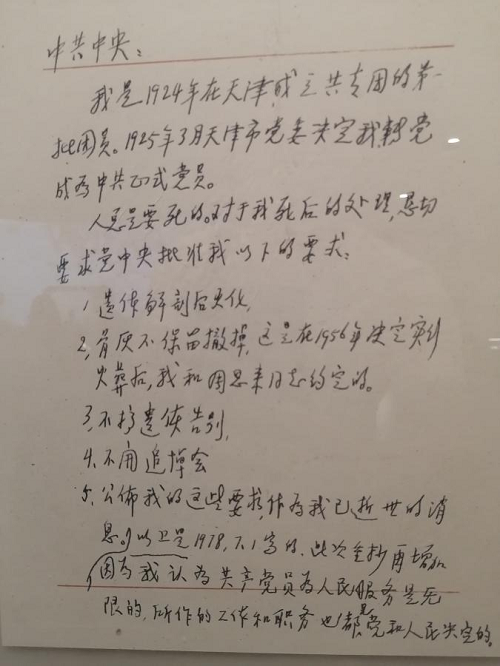 中共中央：
我是1924年在天津成立共青团的第一
批团员。1925年3月天津市党委决定我转党
成为中共正式党员。
人总是要死的。对于我死后的处理，恳切
要求党中央批准我以下的要求：
1.遗体解剖后火化，
2.骨灰不保留撒掉，这是在1956年决定实行
火葬后，我和周恩来同志约定的。
3.不搞遗体告别，
4.不开追悼会
5.公佈我的这些要求，作为我已逝世的消
息。以上是1978，7.1写的，此次重抄再增加
因为我认为共产党员为人民服务是无
限的，所作的工作和职务也都是党和人民决定的。